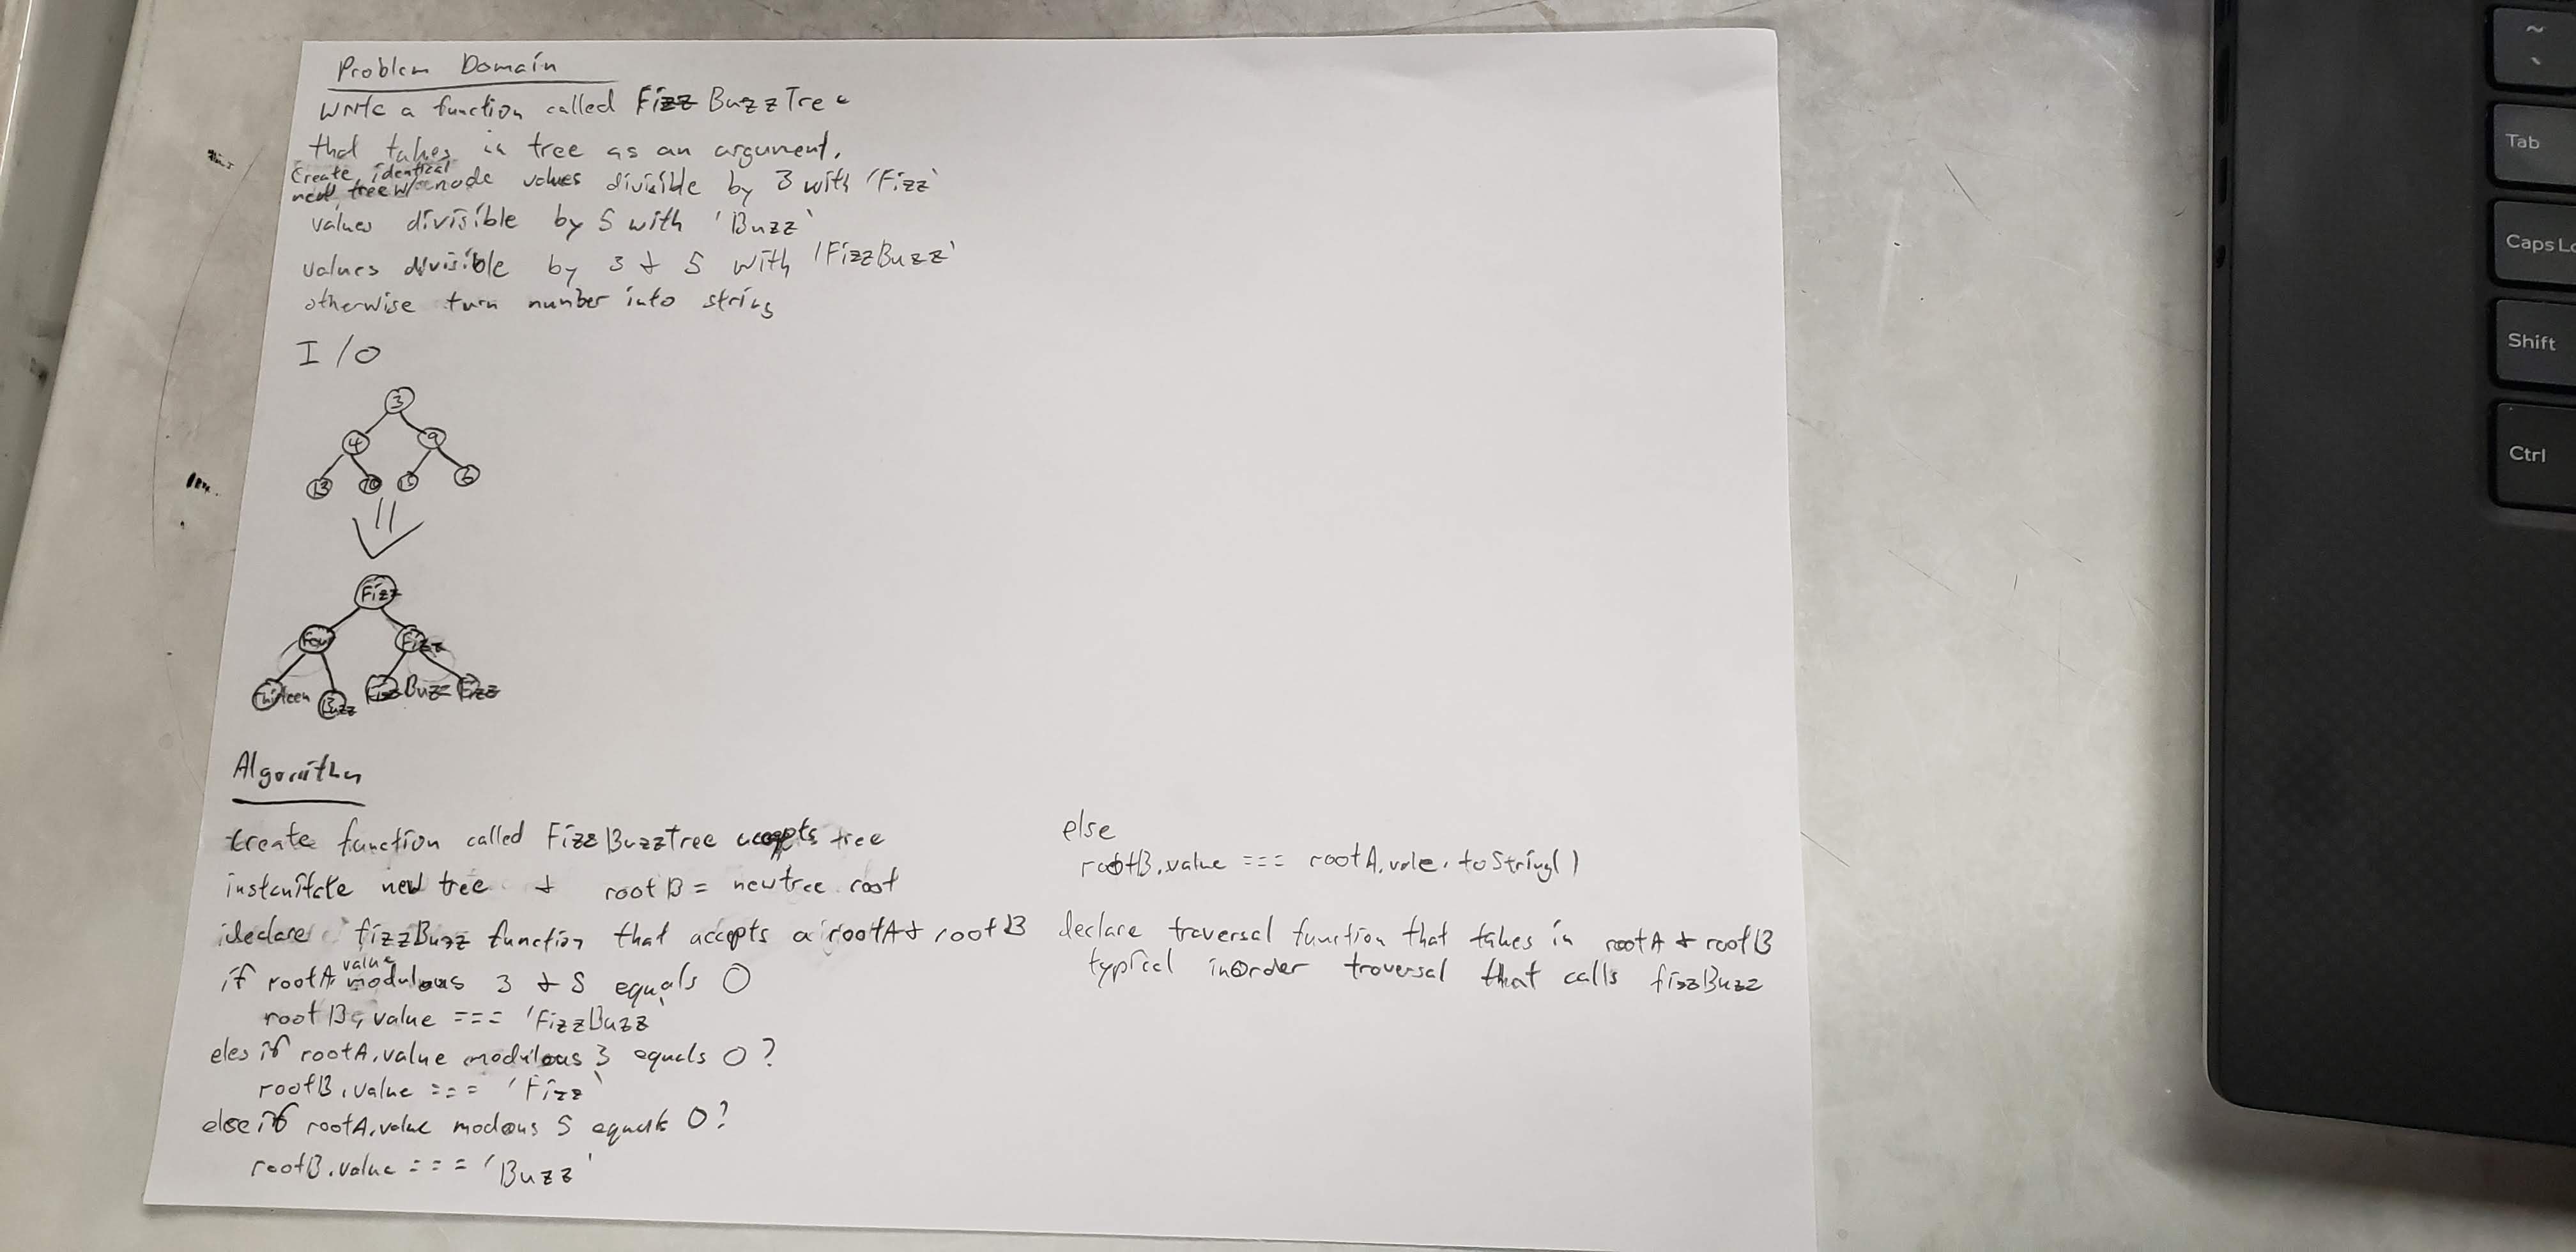 Problem Domain
Write a function called FizzBuzzTree
that takes in tree as an argument.
Create identical
new tree w/ node values divisible by 3 with 'Fizz'
values divisible by 5 with 'Buzz'
values divisible by 3 & 5 with 'FizzBuzz'
otherwise turn number into string
I/O
3
4 9
13 10 15 6
Fizz
Four Fizz
Thirteen Buzz FizzBuzz Fizz
Algorithm
Create function called FizzBuzzTree accepts tree
instanitate new tree & rootB = newtree.root
declare fizzBuzz function that accepts a rootA & rootB
value
if rootA modulous 3 & 5 equals 0
rootB.value === 'FizzBuzz'
eles if rootA.value modulous 3 equals 0?
rootB.value === 'Fizz'
else if rootA.value modous 5 equals 0?
rootB.value === 'Buzz'
else
rootB.value === rootA.vale.toString()
declare traversal function that takes in rootA & rootB
typical inOrder traversal that calls fizzBuzz
~
`
Tab
Caps Lo
Shift
Ctrl